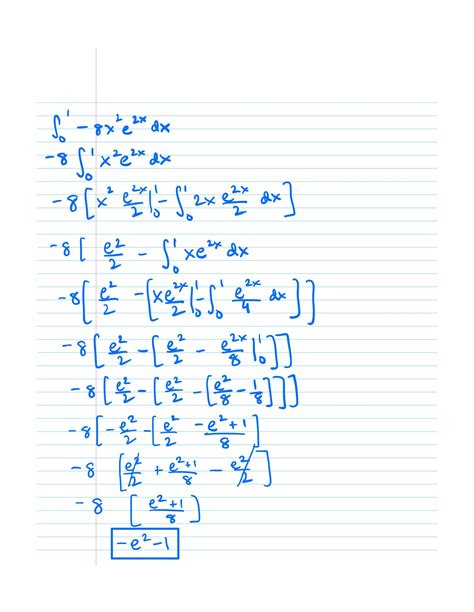 ∫₀¹ − 8x² e²ˣ dx
−8 ∫₀¹ x² e²ˣ dx
−8 [ x² e²ˣ/2 |₀¹ − ∫₀¹ 2x e²ˣ/2 dx ]
−8 [ e²/2 − ∫₀¹ x e²ˣ dx
−8 [ e²/2 − [ x e²ˣ/2 |₀¹ − ∫₀¹ e²ˣ/4 dx ] ]
−8 [ e²/2 − [ e²/2 − e²ˣ/8 |₀¹ ] ]
−8 [ e²/2 − [ e²/2 − [ e²/8 − 1/8 ] ] ]
−8 [ −e²/2 − [ e²/2 −e²+1/8 ]
−8 [ e²/2 + e²+1/8 − e²/2 ]
−8 [ e²+1/8 ]
−e²−1